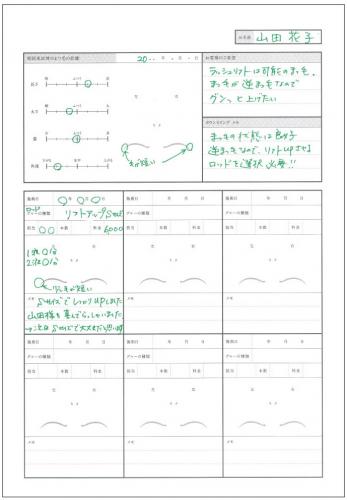 お名前 山田 花子
初回来店時のまつ毛の状態
20 ・ ・
お客様のご希望
ラッシュリフトは可能のまつ毛。
まつ毛が逆まつ毛なので
グンっと上げたい
長さ
太さ
量
カウンセリング メモ
まつ毛の状態は良好
逆まつ毛なので、リフトUPさせる
ロッドを選択 必要!!
毛が短い
施術日 〇年 〇月 〇日
施術日 年 月 日
施術日 年 月 日
ロッド
グルーの種類 リフトアップSサイズ
グルーの種類
グルーの種類
担当 〇〇 本数 料金 6000
担当 本数 料金
担当 本数 料金
右 左
右 左
毛が短い
メモ
メモ
メモ
SサイズでしっかりUPしました
山田様も喜んでらっしゃいました
施術日 年 月 日
施術日 年 月 日
施術日 年 月 日
グルーの種類
グルーの種類
グルーの種類
担当 本数 料金
担当 本数 料金
担当 本数 料金
右 左
右 左
右 左
メモ
メモ
メモ